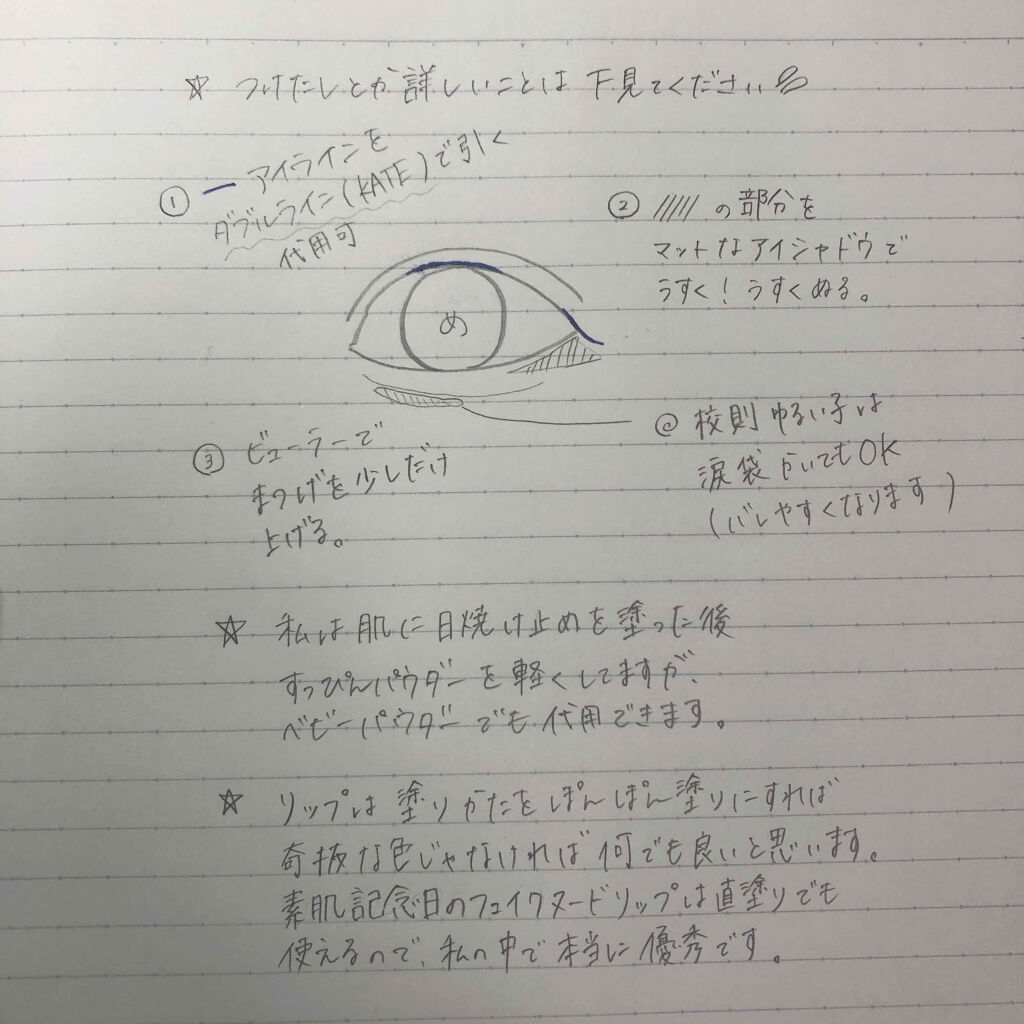 ☆ つけたしとか詳しいことは下見てください
① ー アイラインを
ダブルライン(KATE)で引く
代用可
② ///// の部分を
マットなアイシャドウで
うすく!うすくぬる。
め
@ 校則ゆるい子は
涙袋かいてもOK
(バレやすくなります)
③ ビューラーで
まつげを少しだけ
上げる。
☆ 私は肌に日焼け止めを塗った後
すっぴんパウダーを軽くしてますが、
ベビーパウダーでも代用できます。
☆ リップは塗りかたをぽんぽん塗りにすれば
奇抜な色じゃなければ何でも良いと思います。
素肌記念日のフェイクヌードリップは直塗りでも
使えるので、私の中で本当に優秀です。